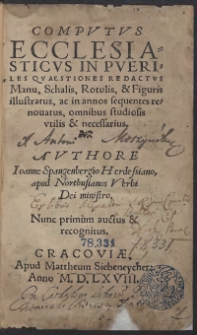 COMPVTVS
ECCLESIA-
STICVS IN PVERI-
LES QVÆSTIONES REDACTVS
Manu, Schalis, Rotulis, & Figuris
illustratus, ac in annos sequentes re-
nouatus, omnibus studiosis
vtilis & necessarius,
A Antoni
AVTHORE
Ioanne Spangenbergio Herdessiano,
apud Northusianos Verbi
Dei ministro,
Nunc primùm auctus &
recognitus,
78,331
CRACOVIÆ,
Apud Mattheum Siebeneycher:
Anno M. D. LXVIII.